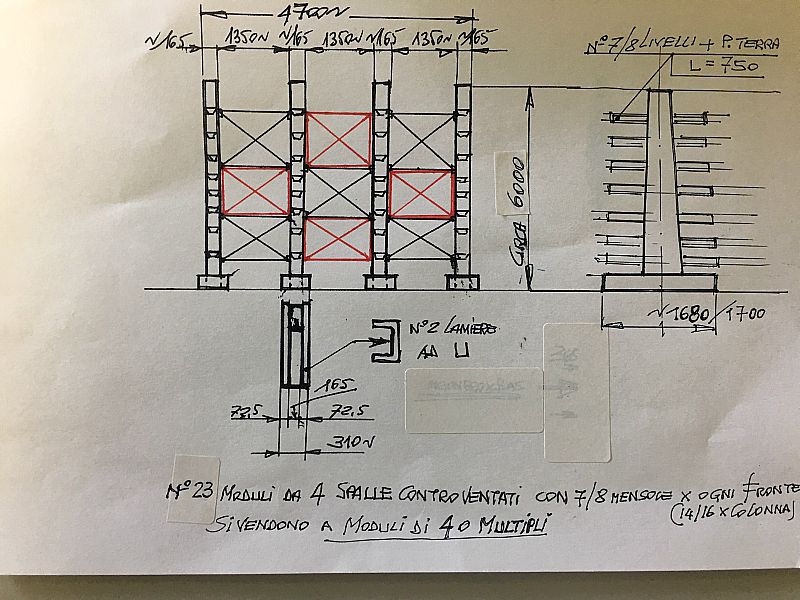 4700~
~165 1350~ ~165 1350~ ~165 1350~ ~165
N° 7/8 LIVELLI + P. TERRA
L = 750
CIRCA 6000
~1680/1700
N° 2 LAMIERE
AD U
165
72,5 72,5
310~
N° 23 MODULI DA 4 SPALLE CONTROVENTATI CON 7/8 MENSOLE X OGNI FRONTE
(14/16 X COLONNA)
SI VENDONO A MODULI DI 4 O MULTIPLI